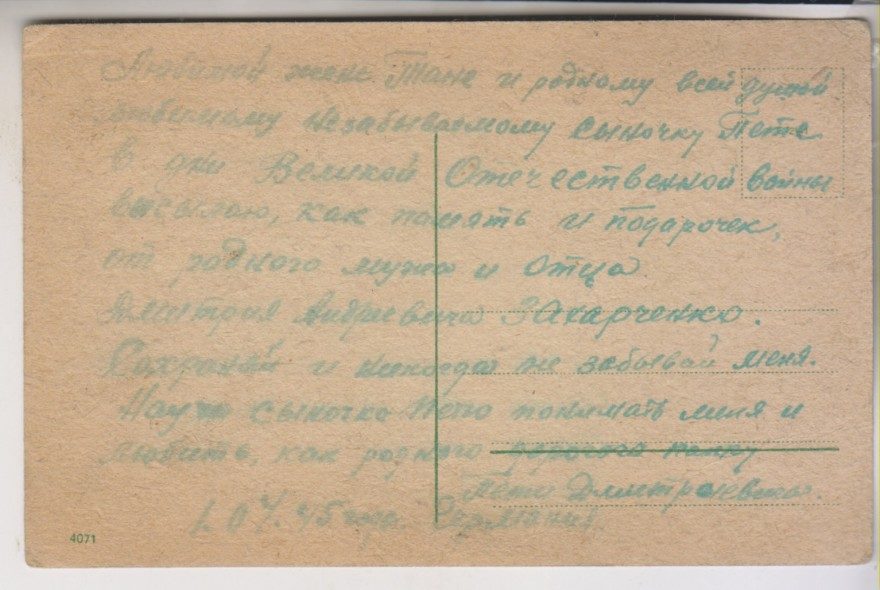 Любимой жене Тане и родному всей душой
любимому незабываемому сыночку Пете
В дни Великой Отечественной войны
высылаю, как память и подарочек,
от родного мужа и отца
Дмитрия Андреевича Захарченко.
Сохраняй и никогда не забывай меня.
Научи сыночка Петю понимать меня и
любить, как родного дорогого папку
Пети Дмитриевича.
45 года Германия.
4071